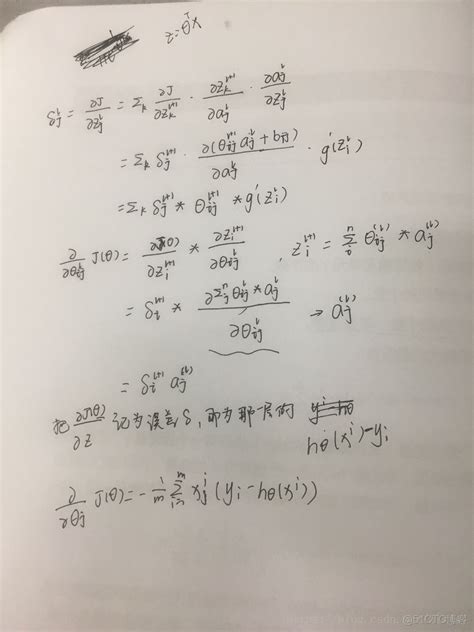 z=θᵀx
δⱼˡ = ∂J/∂zⱼˡ = Σₖ ∂J/∂zₖˡ⁺¹ · ∂zₖˡ⁺¹/∂aⱼˡ · ∂aⱼˡ/∂zⱼˡ
= Σₖ δⱼˡ⁺¹ · ∂(θᵢⱼˡ⁺¹ aⱼˡ + bᵢⱼ)/∂aⱼˡ · g'(zᵢˡ)
= Σₖ δⱼˡ⁺¹ * θᵢⱼˡ⁺¹ * g'(zᵢˡ)
∂/∂θᵢⱼˡ J(θ) = ∂J(θ)/∂zᵢˡ⁺¹ * ∂zᵢˡ⁺¹/∂θᵢⱼˡ , zᵢˡ⁺¹ = Σ θᵢⱼ⁽ˡ⁾ * aⱼ⁽ˡ⁾
= δᵢˡ⁺¹ * ∂Σⱼⁿ θᵢⱼˡ * aⱼˡ/∂θᵢⱼˡ → aⱼ⁽ˡ⁾
= δᵢˡ⁺¹ aⱼ⁽ˡ⁾
把 ∂J(θ)/∂z 记为误差δ, 即为那一层的
hθ(xⁱ)-yᵢ
∂/∂θⱼ J(θ) = -1/m Σᵢ₌₁ᵐ xⱼⁱ (yᵢ - hθ(xⁱ))
@51CTO博客